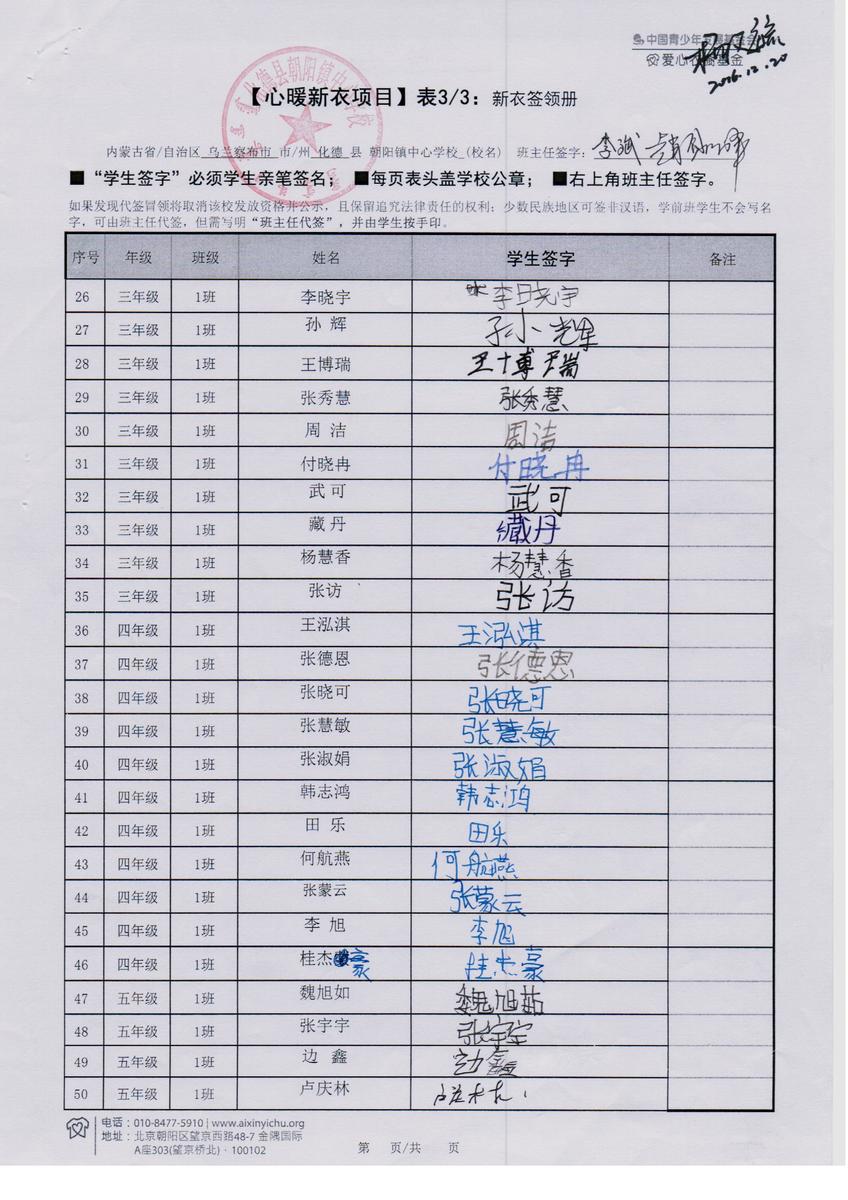 中国青少年发展基金会
爱心衣橱基金
2016.12.20
【心暖新衣项目】表3/3：新衣签领册
内蒙古省/自治区 乌兰察布市 市/州 化德 县 朝阳镇中心学校 (校名) 班主任签字：李斌
■“学生签字”必须学生亲笔签名；■每页表头盖学校公章；■右上角班主任签字。
如果发现代签冒领将取消该校发放资格并公示，且保留追究法律责任的权利；少数民族地区可签非汉语，学前班学生不会写名
字，可由班主任代签，但需写明“班主任代签”，并由学生按手印。
序号 年级 班级 姓名 学生签字 备注
26 三年级 1班 李晓宇 李晓宇
27 三年级 1班 孙 辉 孙小辉
28 三年级 1班 王博瑞 王博瑞
29 三年级 1班 张秀慧 张秀慧
30 三年级 1班 周 洁 周洁
31 三年级 1班 付晓冉 付晓冉
32 三年级 1班 武 可 武可
33 三年级 1班 藏 丹 藏丹
34 三年级 1班 杨慧香 杨慧香
35 三年级 1班 张访 张访
36 四年级 1班 王泓淇 王泓淇
37 四年级 1班 张德恩 张德恩
38 四年级 1班 张晓可 张晓可
39 四年级 1班 张慧敏 张慧敏
40 四年级 1班 张淑娟 张淑娟
41 四年级 1班 韩志鸿 韩志鸿
42 四年级 1班 田 乐 田乐
43 四年级 1班 何航燕 何航燕
44 四年级 1班 张蒙云 张蒙云
45 四年级 1班 李 旭 李旭
46 四年级 1班 桂杰豪 桂杰豪
47 五年级 1班 魏旭如 魏旭茹
48 五年级 1班 张宇宇 张宇宇
49 五年级 1班 边 鑫 边鑫
50 五年级 1班 卢庆林 卢庆林
电话：010-8477-5910 | www.aixinyichu.org
地址：北京朝阳区望京西路48-7 金隅国际
A座303(望京桥北)·100102
第 页/共 页